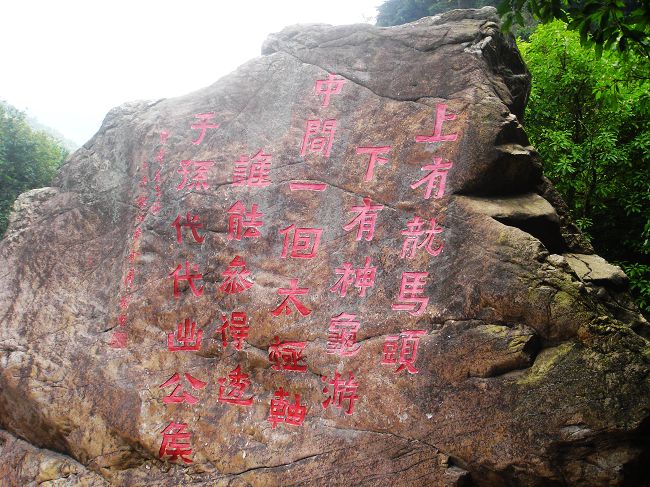 上有龍馬頭
下有神龜游
中間一個太極軸
誰能參得透
子孫代代出公侯